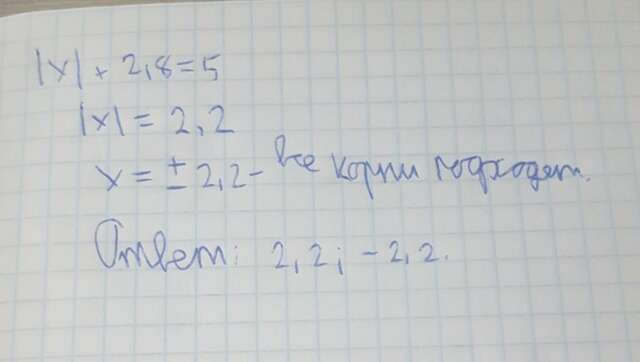 |x| + 2,8 = 5
|x| = 2,2
x = ± 2,2 - все корни подходят.
Ответ: 2,2; -2,2.